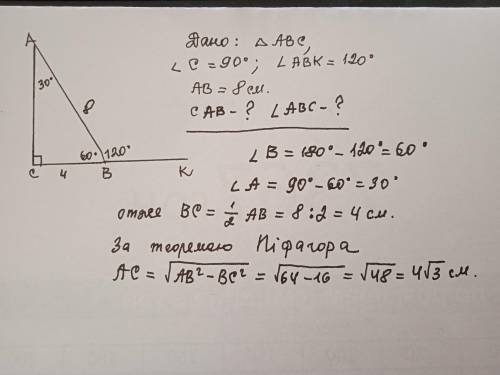 Дано: △ ABC,
∠ C = 90°; ∠ ABK = 120°
AB = 8 см.
CAB - ? ∠ ABC - ?
A
30°
8
60° 120°
C 4 B K
∠ B = 180° - 120° = 60°
∠ A = 90° - 60° = 30°
отже BC = 1/2 AB = 8 : 2 = 4 см.
За теоремою Піфагора
AC = √AB² - BC² = √64 - 16 = √48 = 4√3 см.